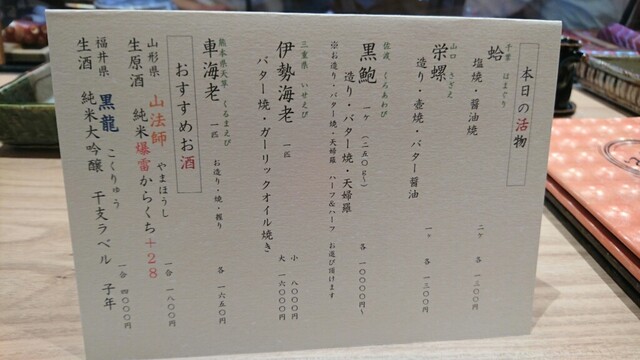 本日の活物
千葉 はまぐり
蛤 塩焼・醤油焼 二ヶ 各 一三〇〇円
山口 さざえ
栄螺 造り・壺焼・バター醤油 一ヶ 各 一三〇〇円
佐渡 くろあわび
黒鮑 一ヶ(二五〇g〜) 造り・バター焼・天婦羅 各 一〇〇〇〇円〜
※お造り・バター焼・天婦羅 ハーフ&ハーフ お選び頂けます
三重県 いせえび
伊勢海老 一匹 小 八〇〇〇円
バター焼・ガーリックオイル焼き 大 一六〇〇〇円
熊本県天草 くるまえび
車海老 一匹 お造り・焼・握り 各 一六五〇円
おすすめお酒
山形県 山法師 やまほうし
生原酒 純米爆雷からくち+28 一合 一八〇〇円
福井県 黒龍 こくりゅう
生酒 純米大吟醸 干支ラベル 子年 一合 四〇〇〇円